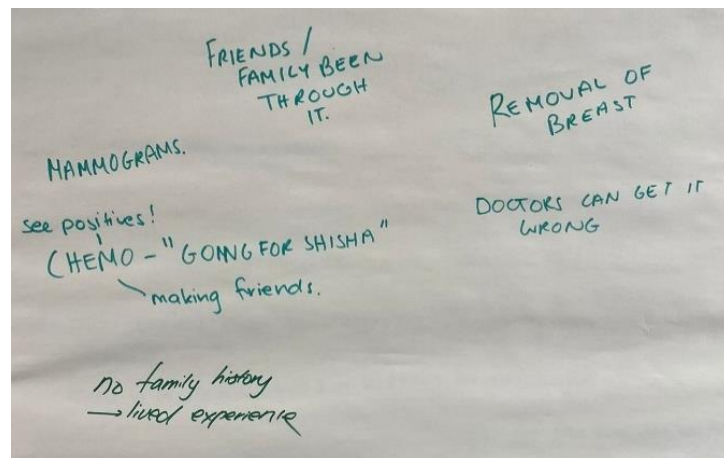 FRIENDS /
FAMILY BEEN
THROUGH
IT.
REMOVAL OF
BREAST
MAMMOGRAMS.
DOCTORS CAN GET IT
WRONG
see positives!
CHEMO - "GOING FOR SHISHA"
making friends.
no family history
→ lived experience